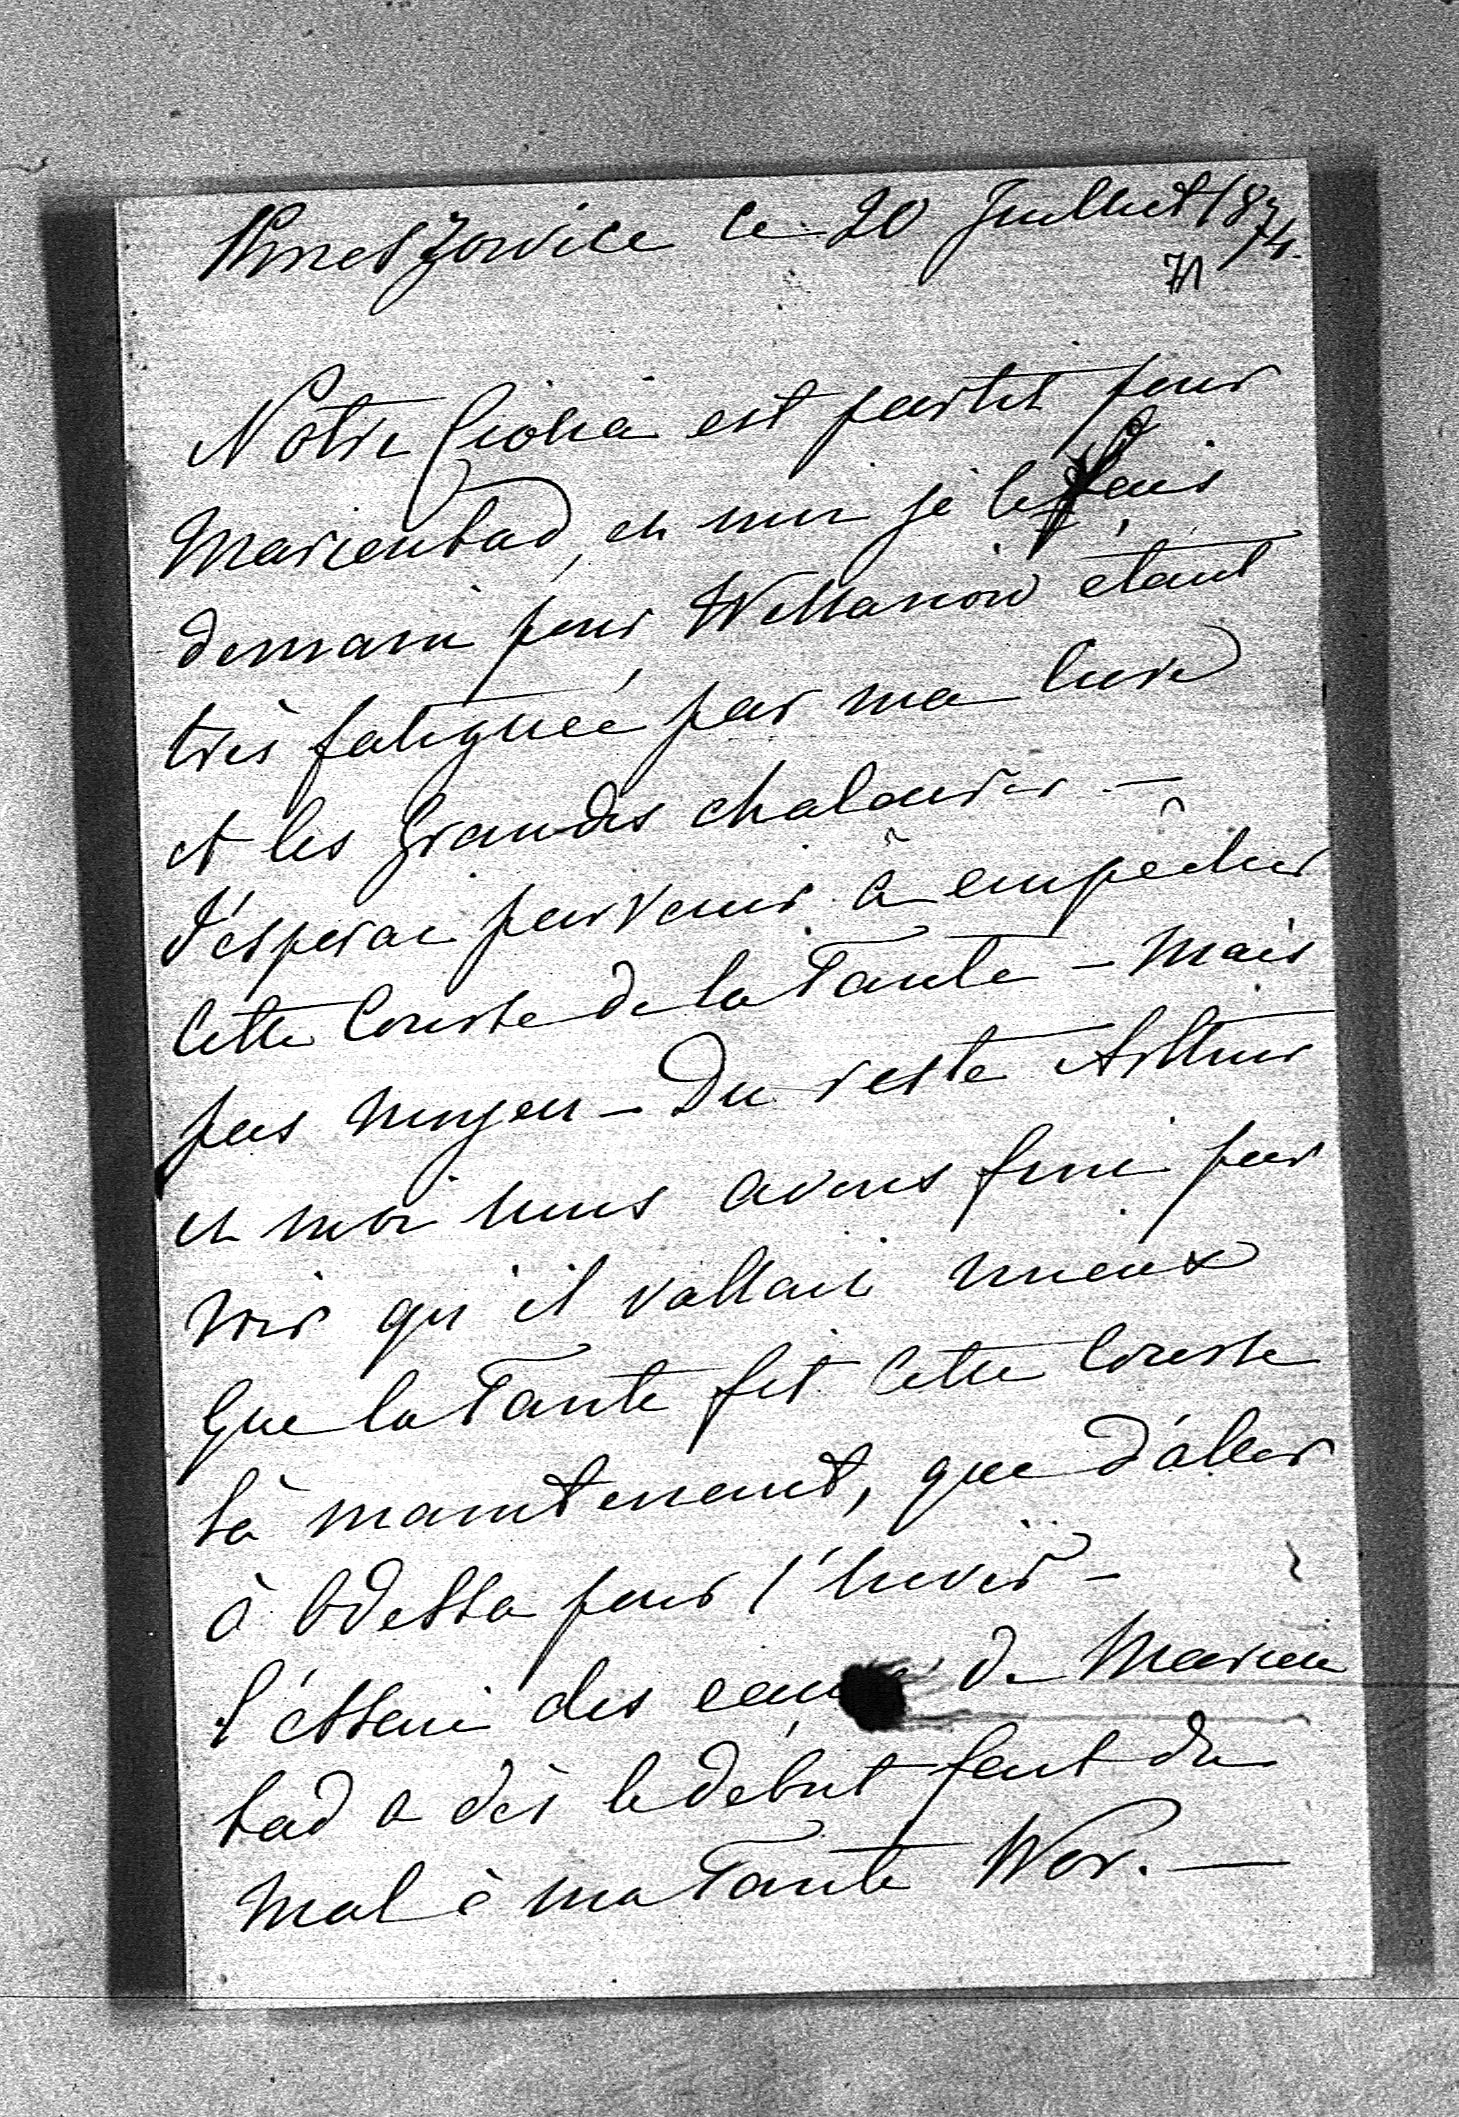 Krzeszowice ce 20 Juillet 1874.
71
Notre Ciocia est partit pour
Marienbad, et moi je le fais
demain pour Willanow étant
très fatiguée par ma cure
et les grandes chaleurs —
J'esperai parvenir à empêcher
cette Course de la Tante — Mais
pas moyen — Du reste Arthur
et moi nous avons fini par
voir qu'il vallait mieux
que la Tante fit cette Course
là maintenant, que d'aller
à Odessa pour l'hiver —
L'essai des eaux de Marien
bad a dès le début fait du
Mal à ma Tante Wor. —